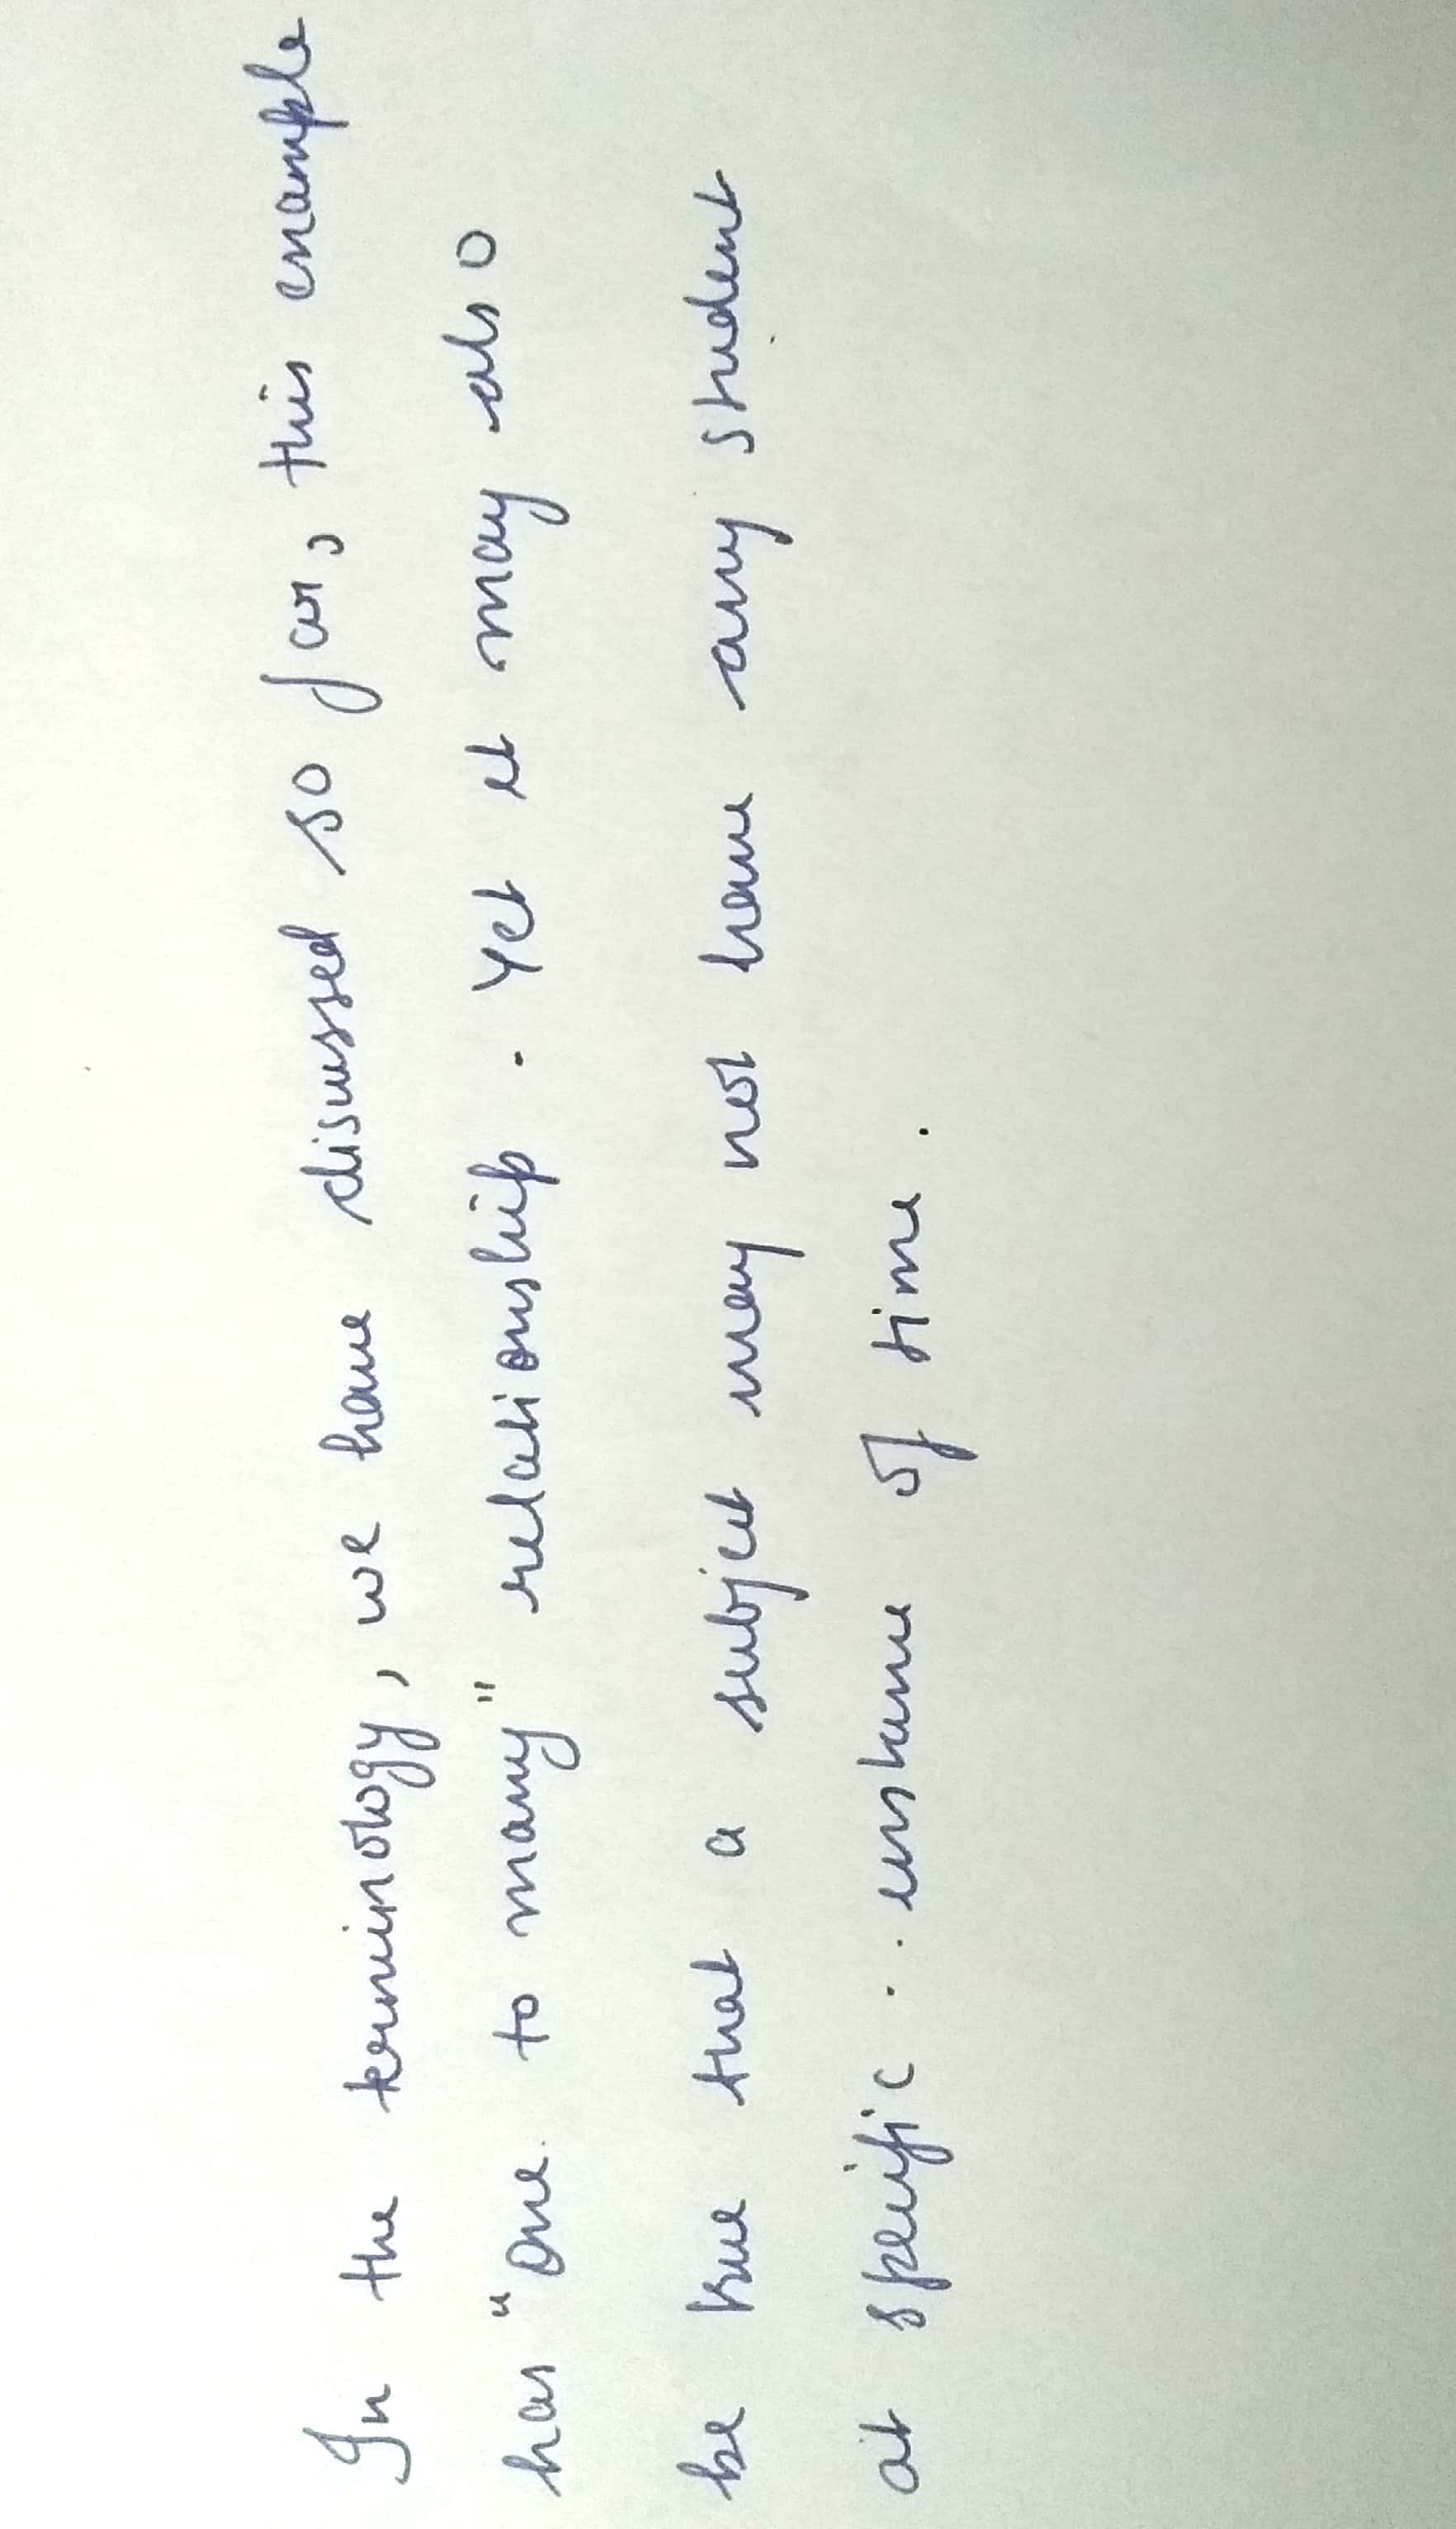 In the terminology, we have discussed so far, this example
has "one to many" relationship. Yet it may also
be true that a subject may not have any student
at specific instance of time.